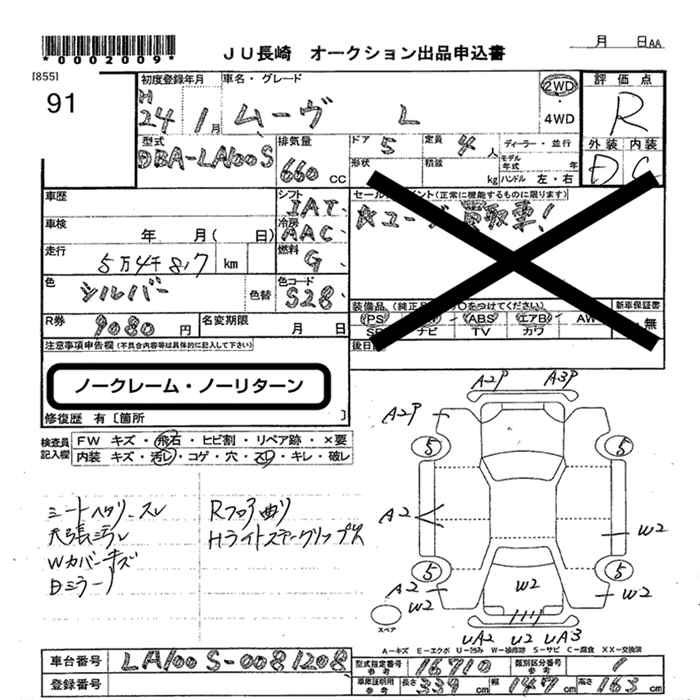 *0002009*
JU長崎 オークション出品申込書
月 日AA
[855]
91
初度登録年月
H
24 1月
車名・グレード
ムーヴ L
2WD
・
4WD
評価点
R
型式
DBA-LA100S
排気量
660 CC
ドア 5
定員 4 人
ディーラー・並行
外装 内装
D C
形状
積載
kg
モデル年式 年
ハンドル 左・右
車歴
シフト
IAT
セールスポイント(正常に機能するものに限ります)
車検
年 月( 日)
冷房
AAC
走行
5万4千817 km
燃料
G
色
シルバー
色替
色コード
S28
装備品(純正品
○をつけてください)
新車保証書
無
R券
9080 円
名変期限
月 日
PS
ABS
エアB
AW
ナビ
TV
カワ
注意事項申告欄(不具合内容等は具体的に記入して下さい)
後日
ノークレーム・ノーリターン
修復歴 有[箇所 ]
検査員
記入欄
FW キズ・飛石・ヒビ割・リペア跡・×要
内装 キズ・汚レ・コゲ・穴・スレ・キレ・破レ
シートヘタリ・スレ
天張汚レ
Wカバーキズ
Rフロア曲り
HライトステークリップX
A2P A3P
A2P
5 5
A2
W2
5 5
A2
W2
W2
W2
UA2 U2 UA3
スペア
A-キズ E-エクボ U-凹み W-補修跡 S-サビ C-腐食 XX-交換済
車台番号
LA100S-0081208
型式指定番号
16710
類別区分番号
1
登録番号
車庫証明用
参考
長さ 339 cm
幅 147 cm
高さ 163 cm